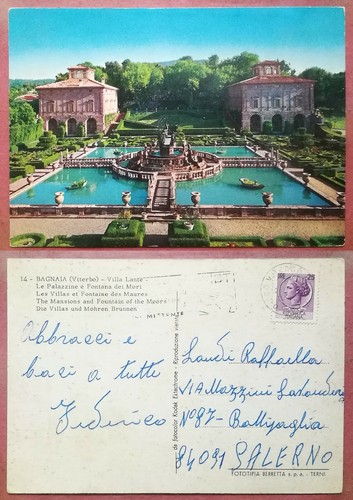 14 - BAGNAIA (Viterbo) - Villa Lante
Le Palazzine e Fontana dei Mori
Les Villas et Fontaine des Maures
The Mansions and Fountain of the Moors
Die Villas und Mohren Brunnen
MITTENTE
Abbracci e
baci a tutti
Federico
Landi Raffaella
VIA Mazzini
N° 87 - Battipaglia
84091 SALERNO
da fotocolor Kodak Ektachrome - Riproduzione vietata
FOTOTIPIA BERRETTA s.p.a. - TERNI